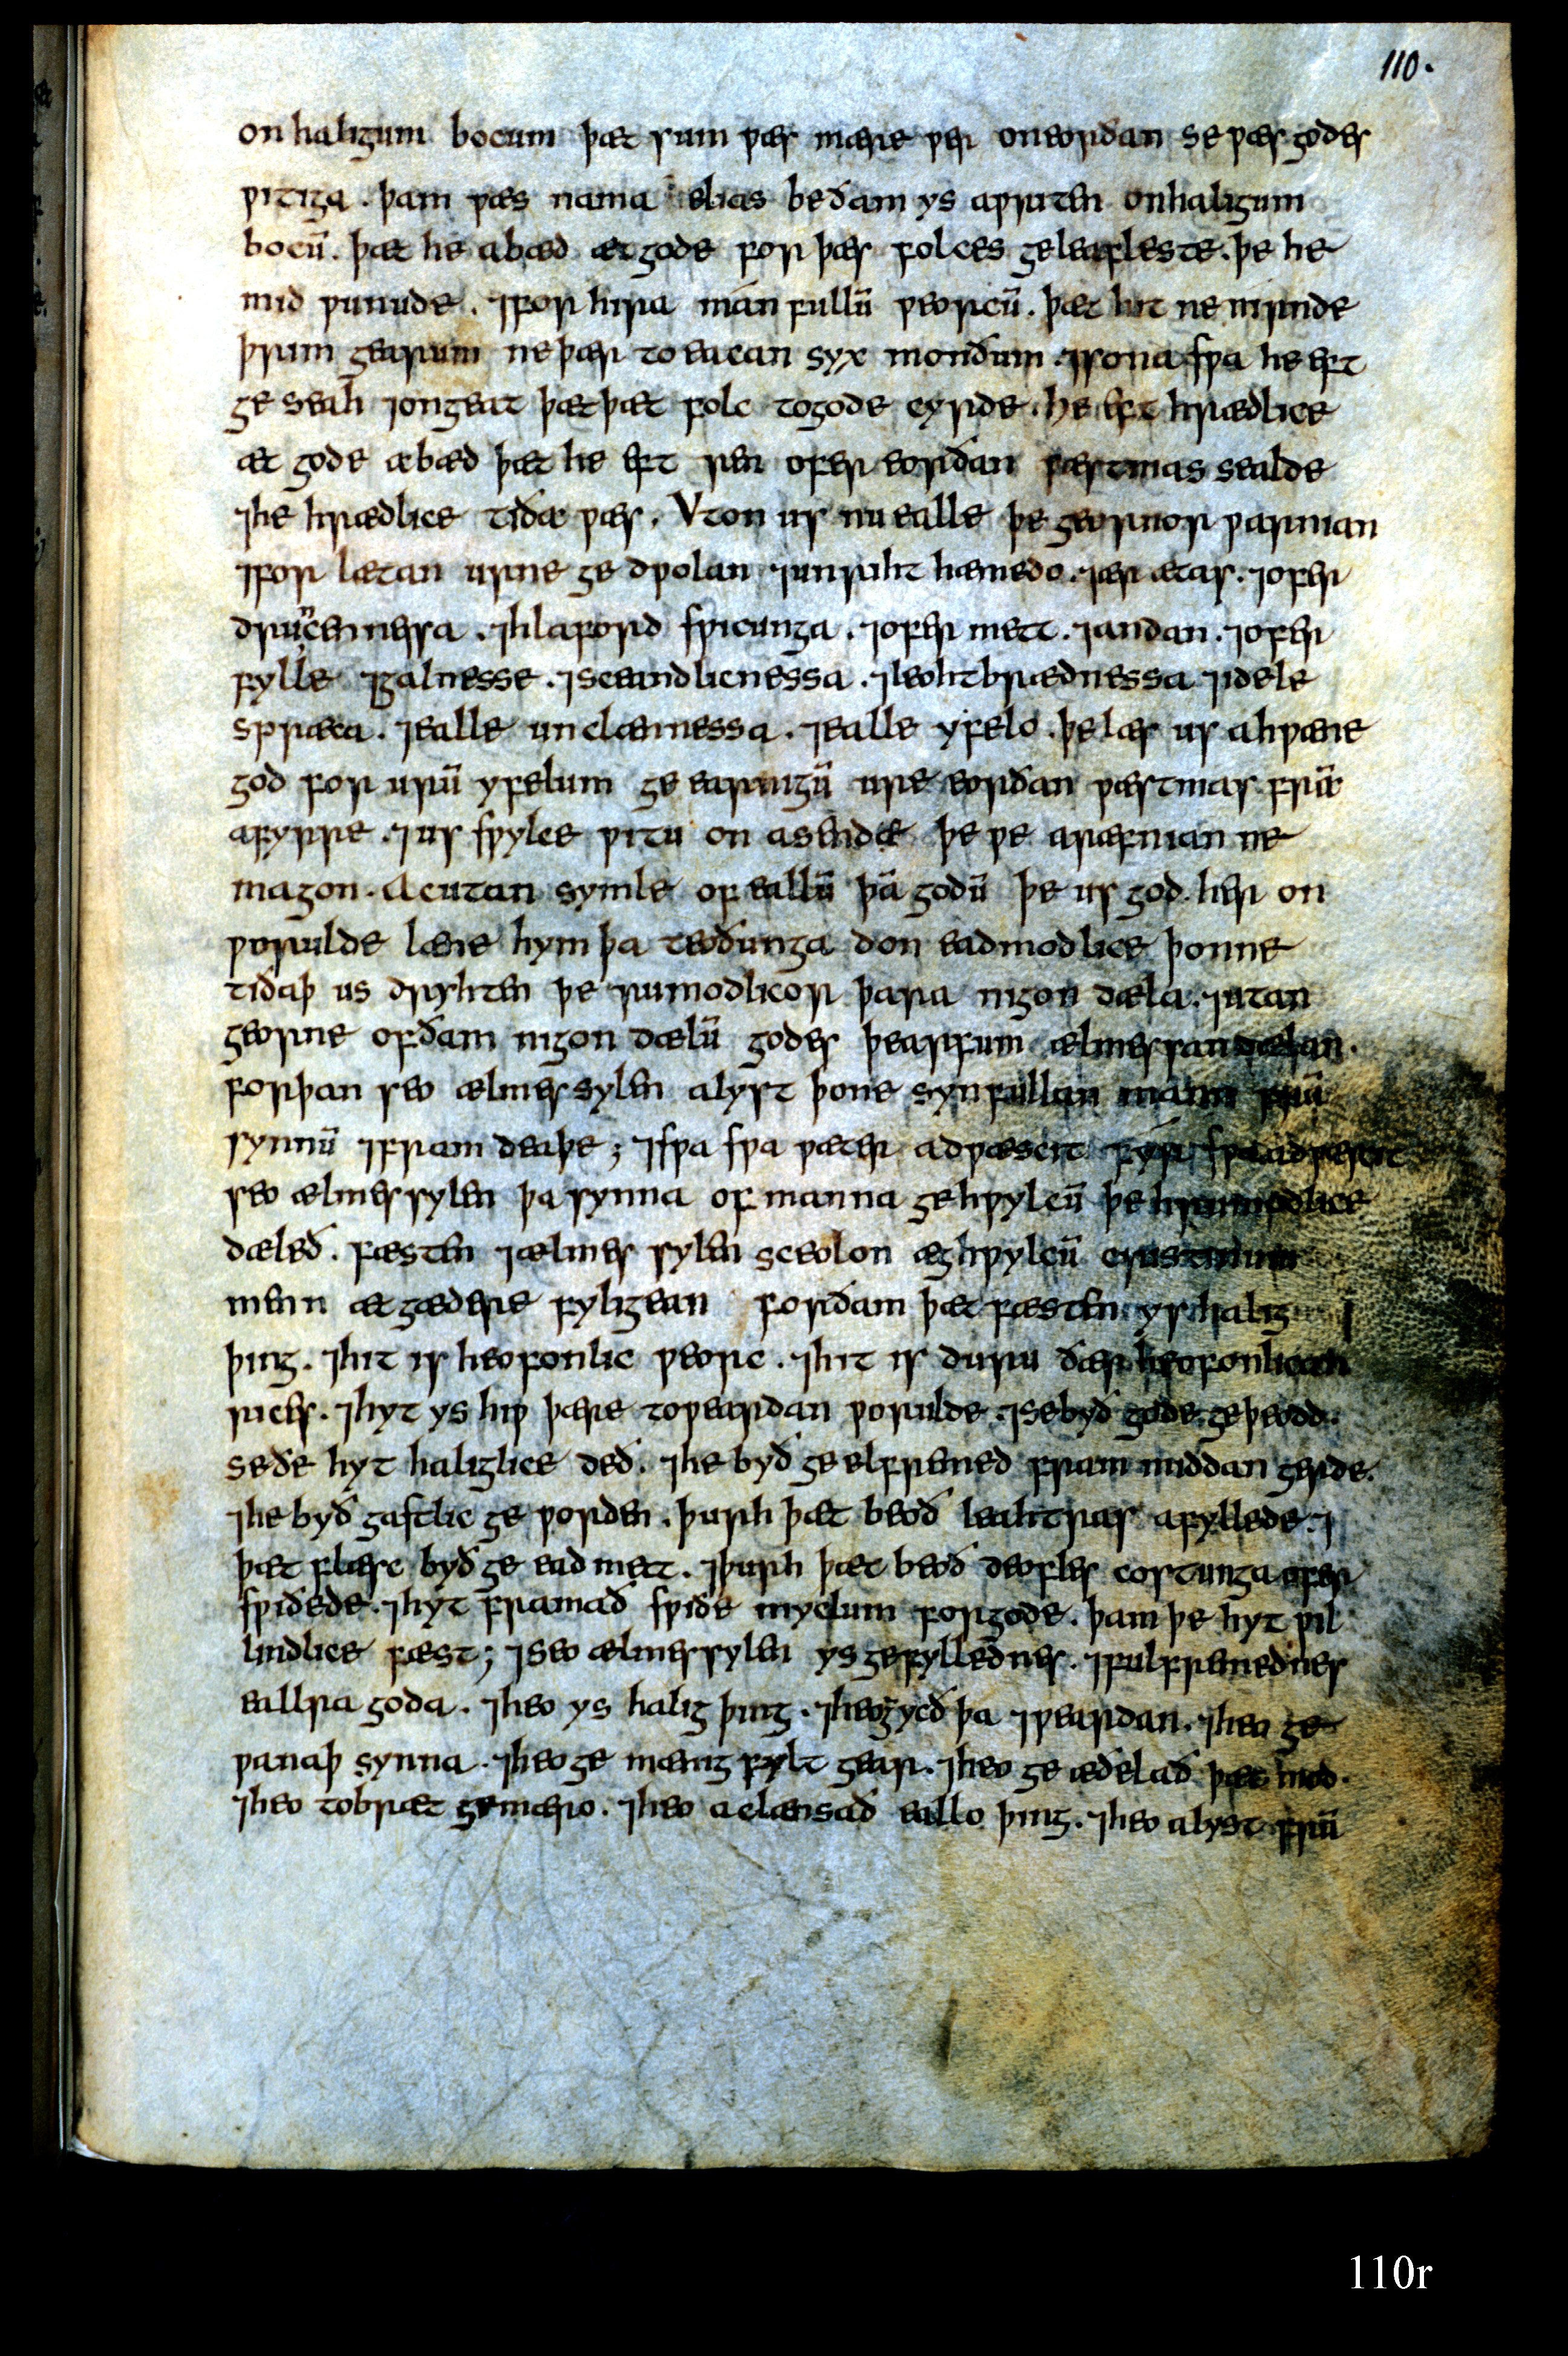 110.
on haligum bocum þæt sum wæs mære wer on eorðan se wæs godes
witiga . þam wæs nama elias be ðam ys awriten on haligum
bocū . þæt he abæd æt gode for þæs folces geleafleste . þe he
mid wunude . ⁊ for hira mán fullū weorcū . þæt hit ne rinde
þrim gearum ne þær to eacan syx monðum . ⁊ sona swa he eft
ge seah ⁊ ongeat þæt þæt folc to gode cyrde . he eft hrædlice
æt gode æbæd þæt he eft ren ofer eorðan wæstmas sealde
⁊ he hrædlice tiðæ wæs . Vton us nu ealle þe geornor warnian
⁊ forlætan urne ge dwolan ⁊ unriht hæmedo . ⁊ ær ætas . ⁊ ofer
druncennesa . ⁊ hlaford swicunga . ⁊ ofer mett . ⁊ andan . ⁊ ofer
fylle ⁊ galnesse . ⁊ sceandlicnessa . ⁊ leohtbrædnessa ⁊ idele
spræca . ⁊ ealle unclænnessa . ⁊ ealle yfelo . þe læs us ahwæne
god for urū yfelum ge earnigū ure eorðan wæstmas frū
afyrre . ⁊ us swylce witu on asendæ þe we aræfnian ne
magon . Ac utan symle of eallū þā godū þe us god her on
woruldе læne hym þa teoðunga don eadmodlice þonne
tiðaþ us dryhten þe rumodlicor þara nigon dæla . ⁊ utan
georne of ðam nigon dælū godes þearfum ælmessan dælan .
forþan seo ælmessylen alyst þone synfullan mann frū
synnū ⁊ fram deaþe ; ⁊ swa swa wæter adwæscit fýr swa adwæscit
seo ælmessylen þa synna of manna gehwylcū þe hrummodlice
dæleð . fæsten ⁊ ælmes sylen sceolon æghwylcū cristenum
menn æt gædere fyligean forðam þæt fæsten ys halig ⁊
þing . ⁊ hit is heofonlic weorc . ⁊ hit is duru ðær heofonlican
rices . ⁊ hyt ys hiw þære toweardan worulde . ⁊ se byð gode geþeodd .
se ðe hyt haliglice deð . ⁊ he byð ge elfremed fram middan gerde .
⁊ he byð gastlic ge worden . þurh þæt beoð leahtras afyllede . ⁊
þæt flæsc byð ge ead mett . ⁊ þurh þæt beoð deofles costunga ofer
swiðede . ⁊ hyt framað swiðe myclum for gode . þam þe hyt wil
lindlice fæst ; ⁊ seo ælmessylen ys gefyllednes . ⁊ fulfremednes
eallra goda . ⁊ heo ys halig þing . ⁊ heo gycð þa ⁊ weardan . ⁊ heo ge
wanaþ synna . ⁊ heo ge mænig fylt gear . ⁊ heo ge æðelað þæt mod .
⁊ heo tobræt gemæro . ⁊ heo aclænsað eallo þing . ⁊ heo alyst frū
110r